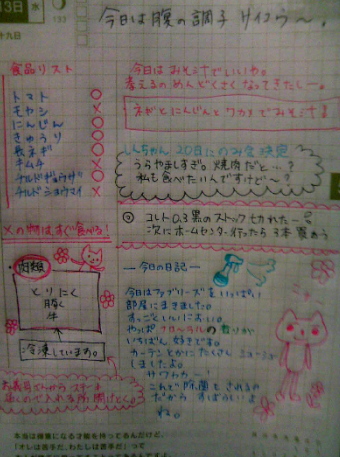 13日 水
132
十九日
今日は腹の調子サイコウ〜。
食品リスト
トマト ○
モヤシ ×
にんじん ○
きゅうり ○
長ネギ ○
キムチ ×
チルドギョウザ ×
チルドショウマイ ×
×の物はすぐ食べる!
今日はみそ汁でいいや。
考えるのめんどくさくなってきたしー。
ネギとにんじんとワカメでみそ汁
しんちゃん 20日にのみ会決定
うらやましすぎ。焼肉だと…?
私も食べたいんですけど〜?
◎ コレト0.3黒のストックせれた
次にホームセンター行ったら3本買おう
・肉類
とりにく
豚く
牛
冷凍しています。
お義母さんからステーキ
― 今日の日記 ―
今日はファブリーズをいっぱい
部屋にまきました。
すっごくいいにおい。
やっぱフローラルの香りが
いちばん好きです。
カーテンとかにたくさん
しましたよ。
サワヤカー!
これで除菌もされるの
だからすばらしいよ
ね。
本当は横着になる才能を持ってるんだけど、